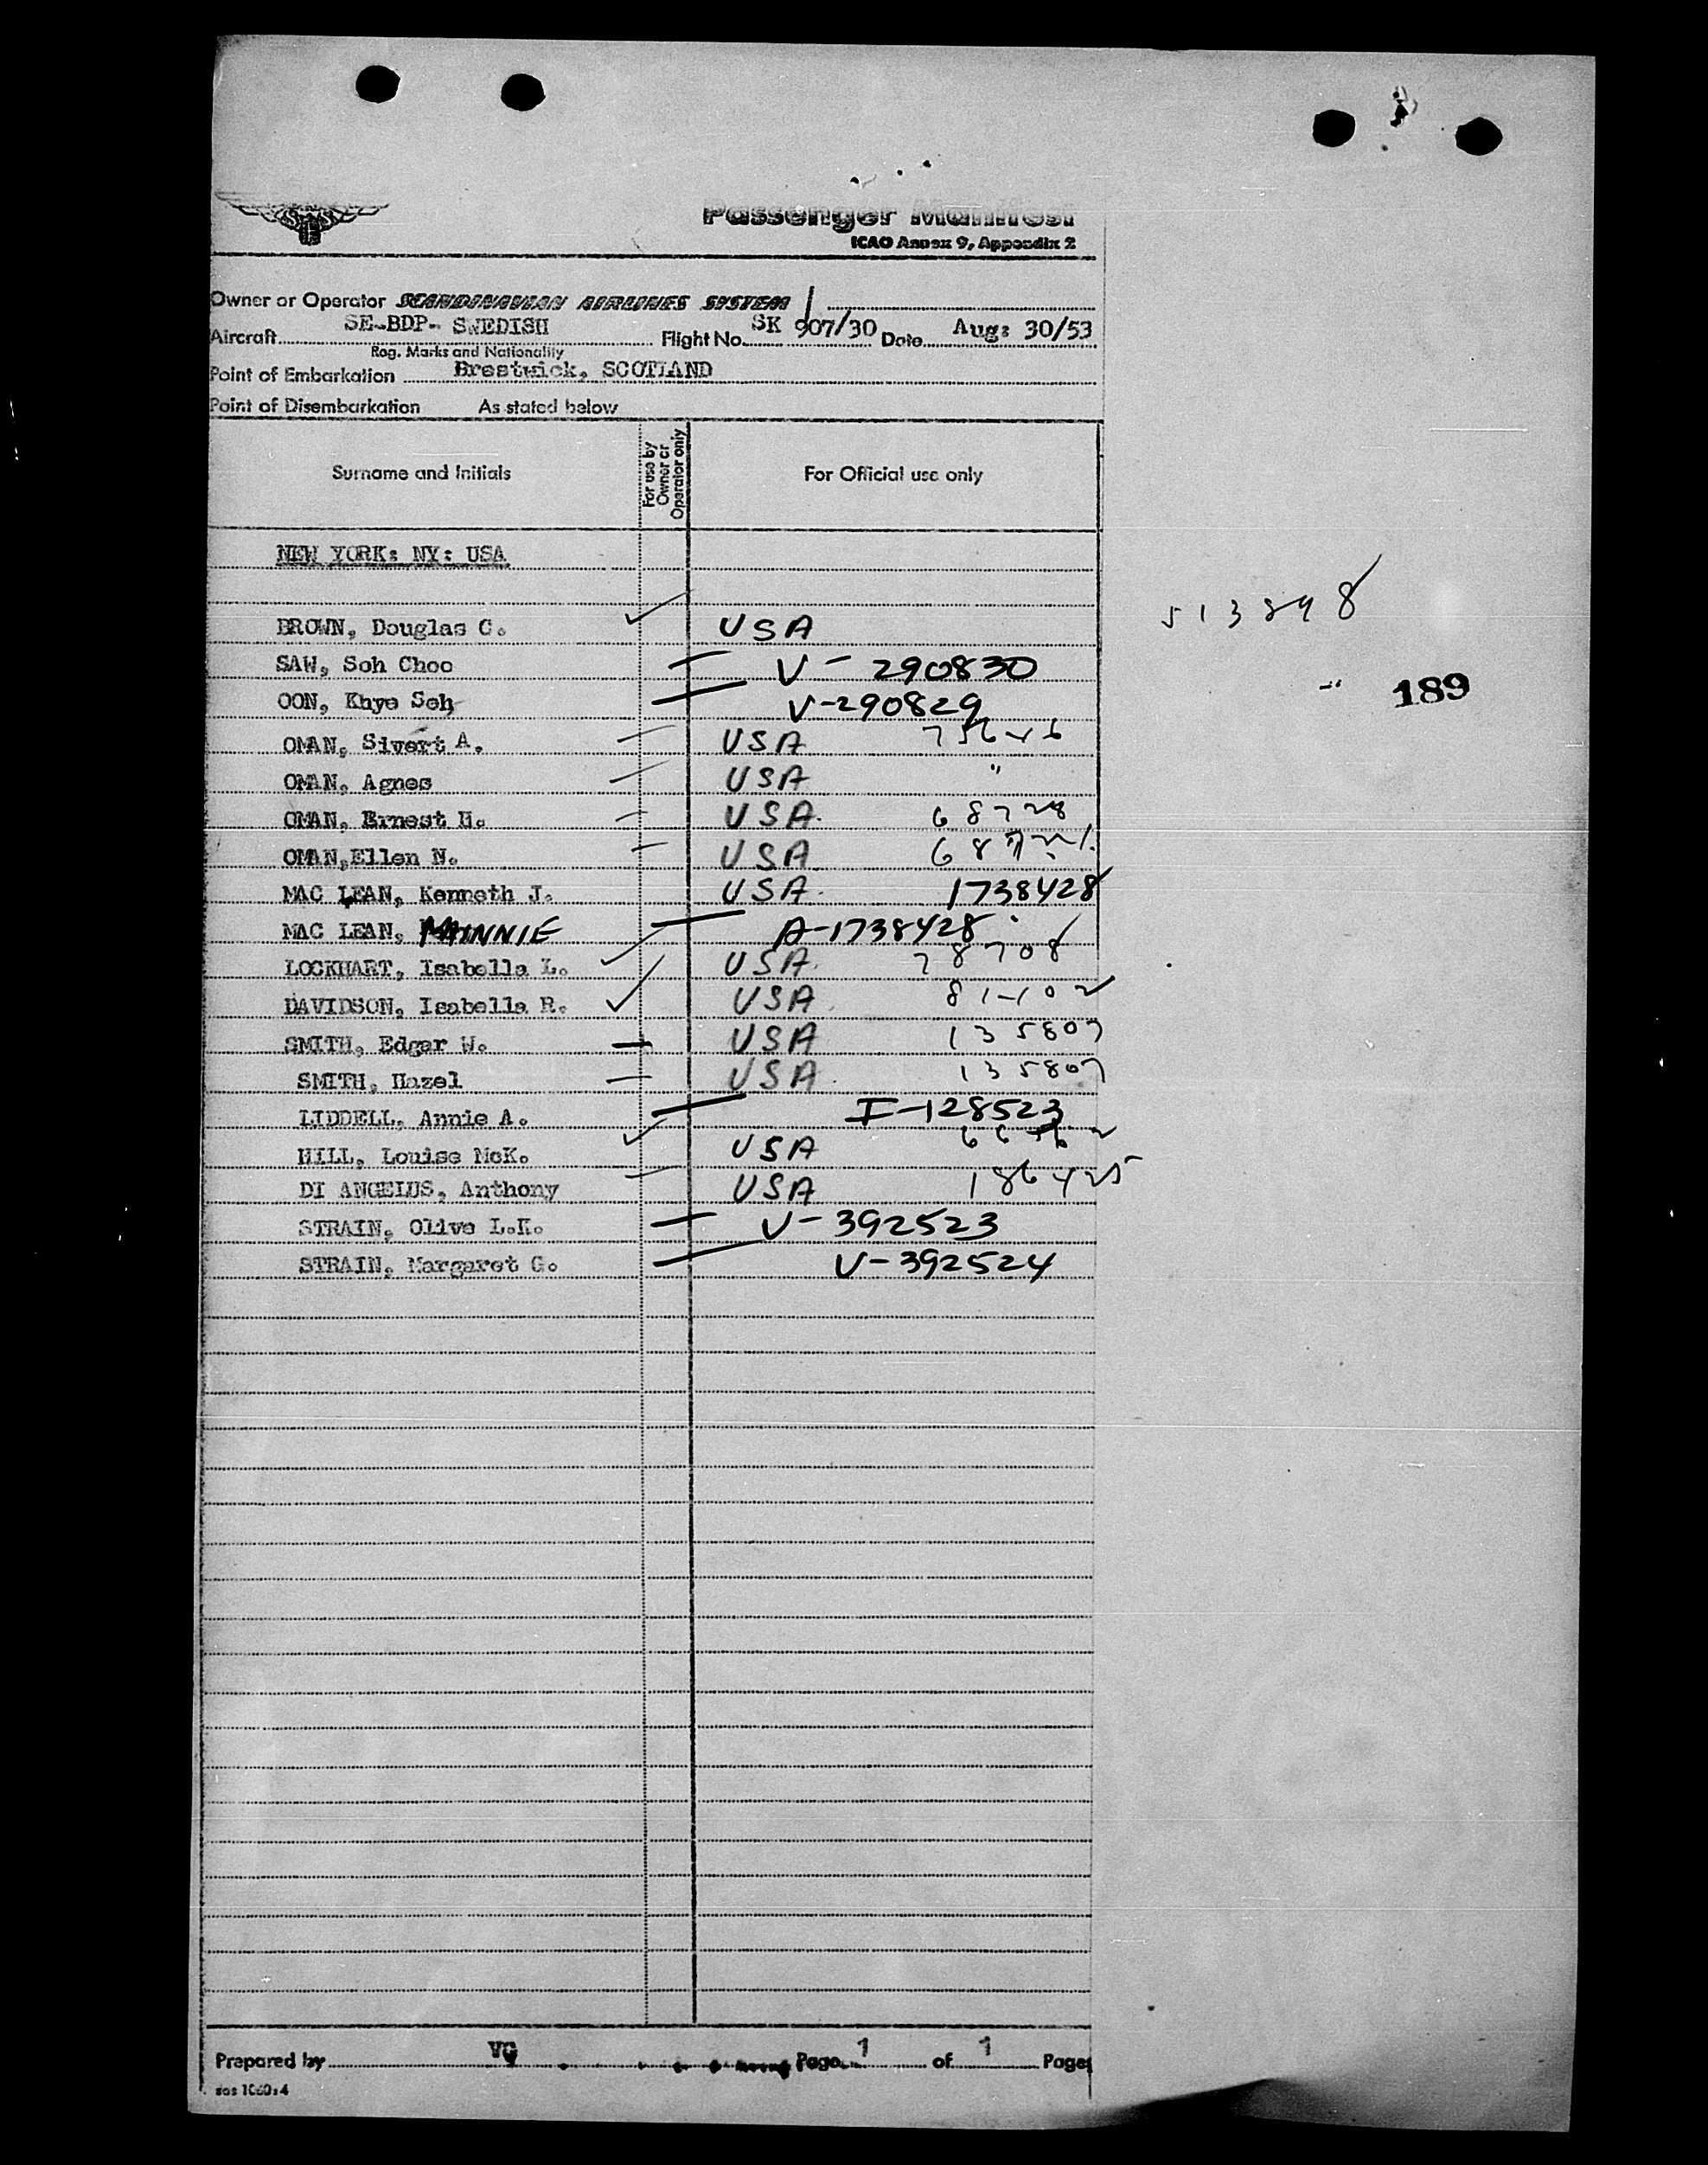 Passenger Manifest
ICAO Annex 9, Appendix 2
Owner or Operator SCANDINAVIAN AIRLINES SYSTEM
Aircraft SE-BDP- SWEDISH Flight No. SK 907/30 Date Aug: 30/53
Reg. Marks and Nationality
Point of Embarkation Prestwick, SCOTLAND
Point of Disembarkation As stated below
Surname and Initials For use by Owner or Operator only For Official use only
NEW YORK: NY: USA
BROWN, Douglas C. USA 513898
SAW, Soh Choo V-290830
189
OON, Khye Soh V-290829
OMAN, Sivert A. USA
OMAN, Agnes USA "
OMAN, Ernest H. USA 68728
OMAN, Ellen N. USA
MAC LEAN, Kenneth J. USA 1738428
MAC LEAN, MINNIE A-1738428
LOCKHART, Isabella L. USA 78708
DAVIDSON, Isabella R. USA
SMITH, Edgar W. USA 135807
SMITH, Hazel USA 135807
LIDDELL, Annie A. I-128523
HILL, Louise McK. USA
DI ANGELUS, Anthony USA 186425
STRAIN, Olive L.K. V-392523
STRAIN, Margaret G. V-392524
Prepared by VG Page 1 of 1 Pages
sas 1060:4